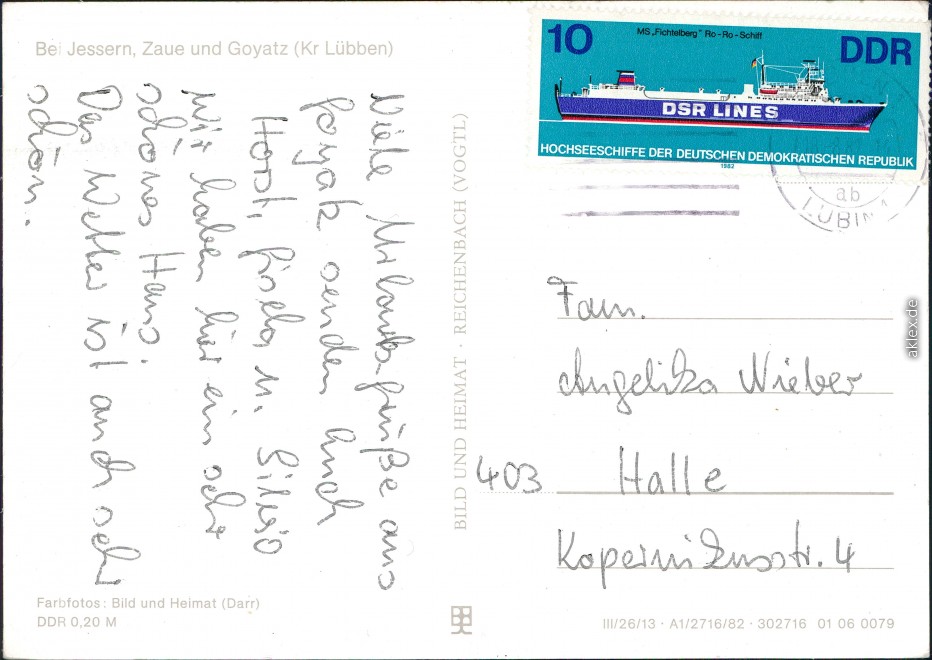 Bei Jessern, Zaue und Goyatz (Kr Lübben)
Viele Urlaubsgrüße aus
Goyatz senden Euch
Horst, Gisela u. Silvio
Wir haben hier ein sehr
schönes Haus.
Das Wetter ist auch sehr
schön.
Farbfotos: Bild und Heimat (Darr)
DDR 0,20 M
BILD UND HEIMAT · REICHENBACH (VOGTL)
10
MS „Fichtelberg" Ro-Ro-Schiff
DDR
DSR LINES
HOCHSEESCHIFFE DER DEUTSCHEN DEMOKRATISCHEN REPUBLIK
1982
ab
LÜBIN
Fam.
Angelika Nieber
403 Halle
Kopernikusstr. 4
III/26/13 · A1/2716/82 · 302716 01 06 0079
aklex.de